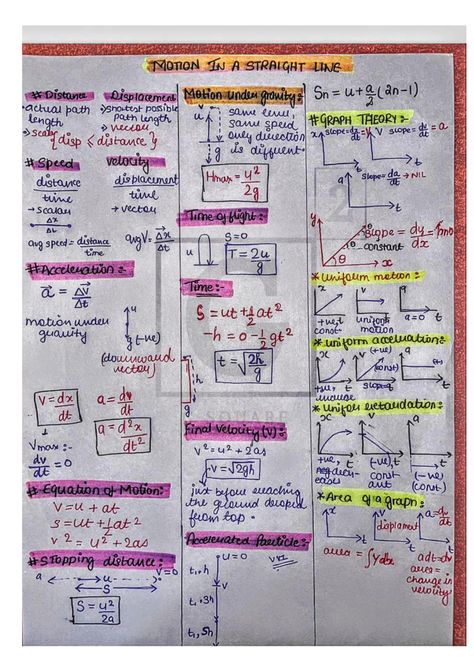 MOTION IN A STRAIGHT LINE
# Distance
actual path
length
→ scalar
{disp ≤ distance}
Displacement
→ shortest possible
path length
→ vector
# Speed
distance
time
→ scalar
Δx
Δt
avg speed = distance
time
velocity
displacement
time
→ vector
avg V = Δx
Δt
# Acceleration :-
a = ΔV
Δt
motion under
gravity
u
g (-ve)
(downward
vector)
V = dx
dt
a = dv
dt
a = d²x
dt²
Vmax :-
dv
dt = 0
# Equation of Motion :-
V = u + at
S = ut + 1/2 at²
V² = u² + 2as
# Stopping distance :-
a
u
V=0
S
S = u²
2a
Motion under gravity :-
V
u
g
same level,
same speed
only direction
is different.
Hmax = u²
2g
Time of flight :-
u
S=0
T = 2u
g
Time :-
S = ut + 1/2 at²
-h = 0 - 1/2 gt²
t = √2h
g
h
g
SQUARE
Final Velocity (V) :-
V² = u² + 2as
V = √2gh
just before reaching
the ground dropped
from top.
Accelerated Particle :-
u=0
t, h
V
t, 3h
t, 5h
Sn = u + a/2 (2n-1)
# GRAPH THEORY :-
x
slope = dx
dt = V
t
V
slope = dv
dt = a
t
a
slope = da
dt → NIL
t
y
slope = dy
dx
θ
constant
x
* Uniform motion :-
x
t
+ve,
const
V
t
uniform
motion
a
t
a=0
* uniform acceleration :-
x
t
+ve,
V
(+ve)
(const)
t
slope
a
t
* Uniform retardation :-
x
t
(-ve),
const
a
t
(-ve)
(const)
* Area of a graph :-
x
t
area = ∫y dx
V
t
a = dv
dt
t
a dt = dv
area =
change in
velocity